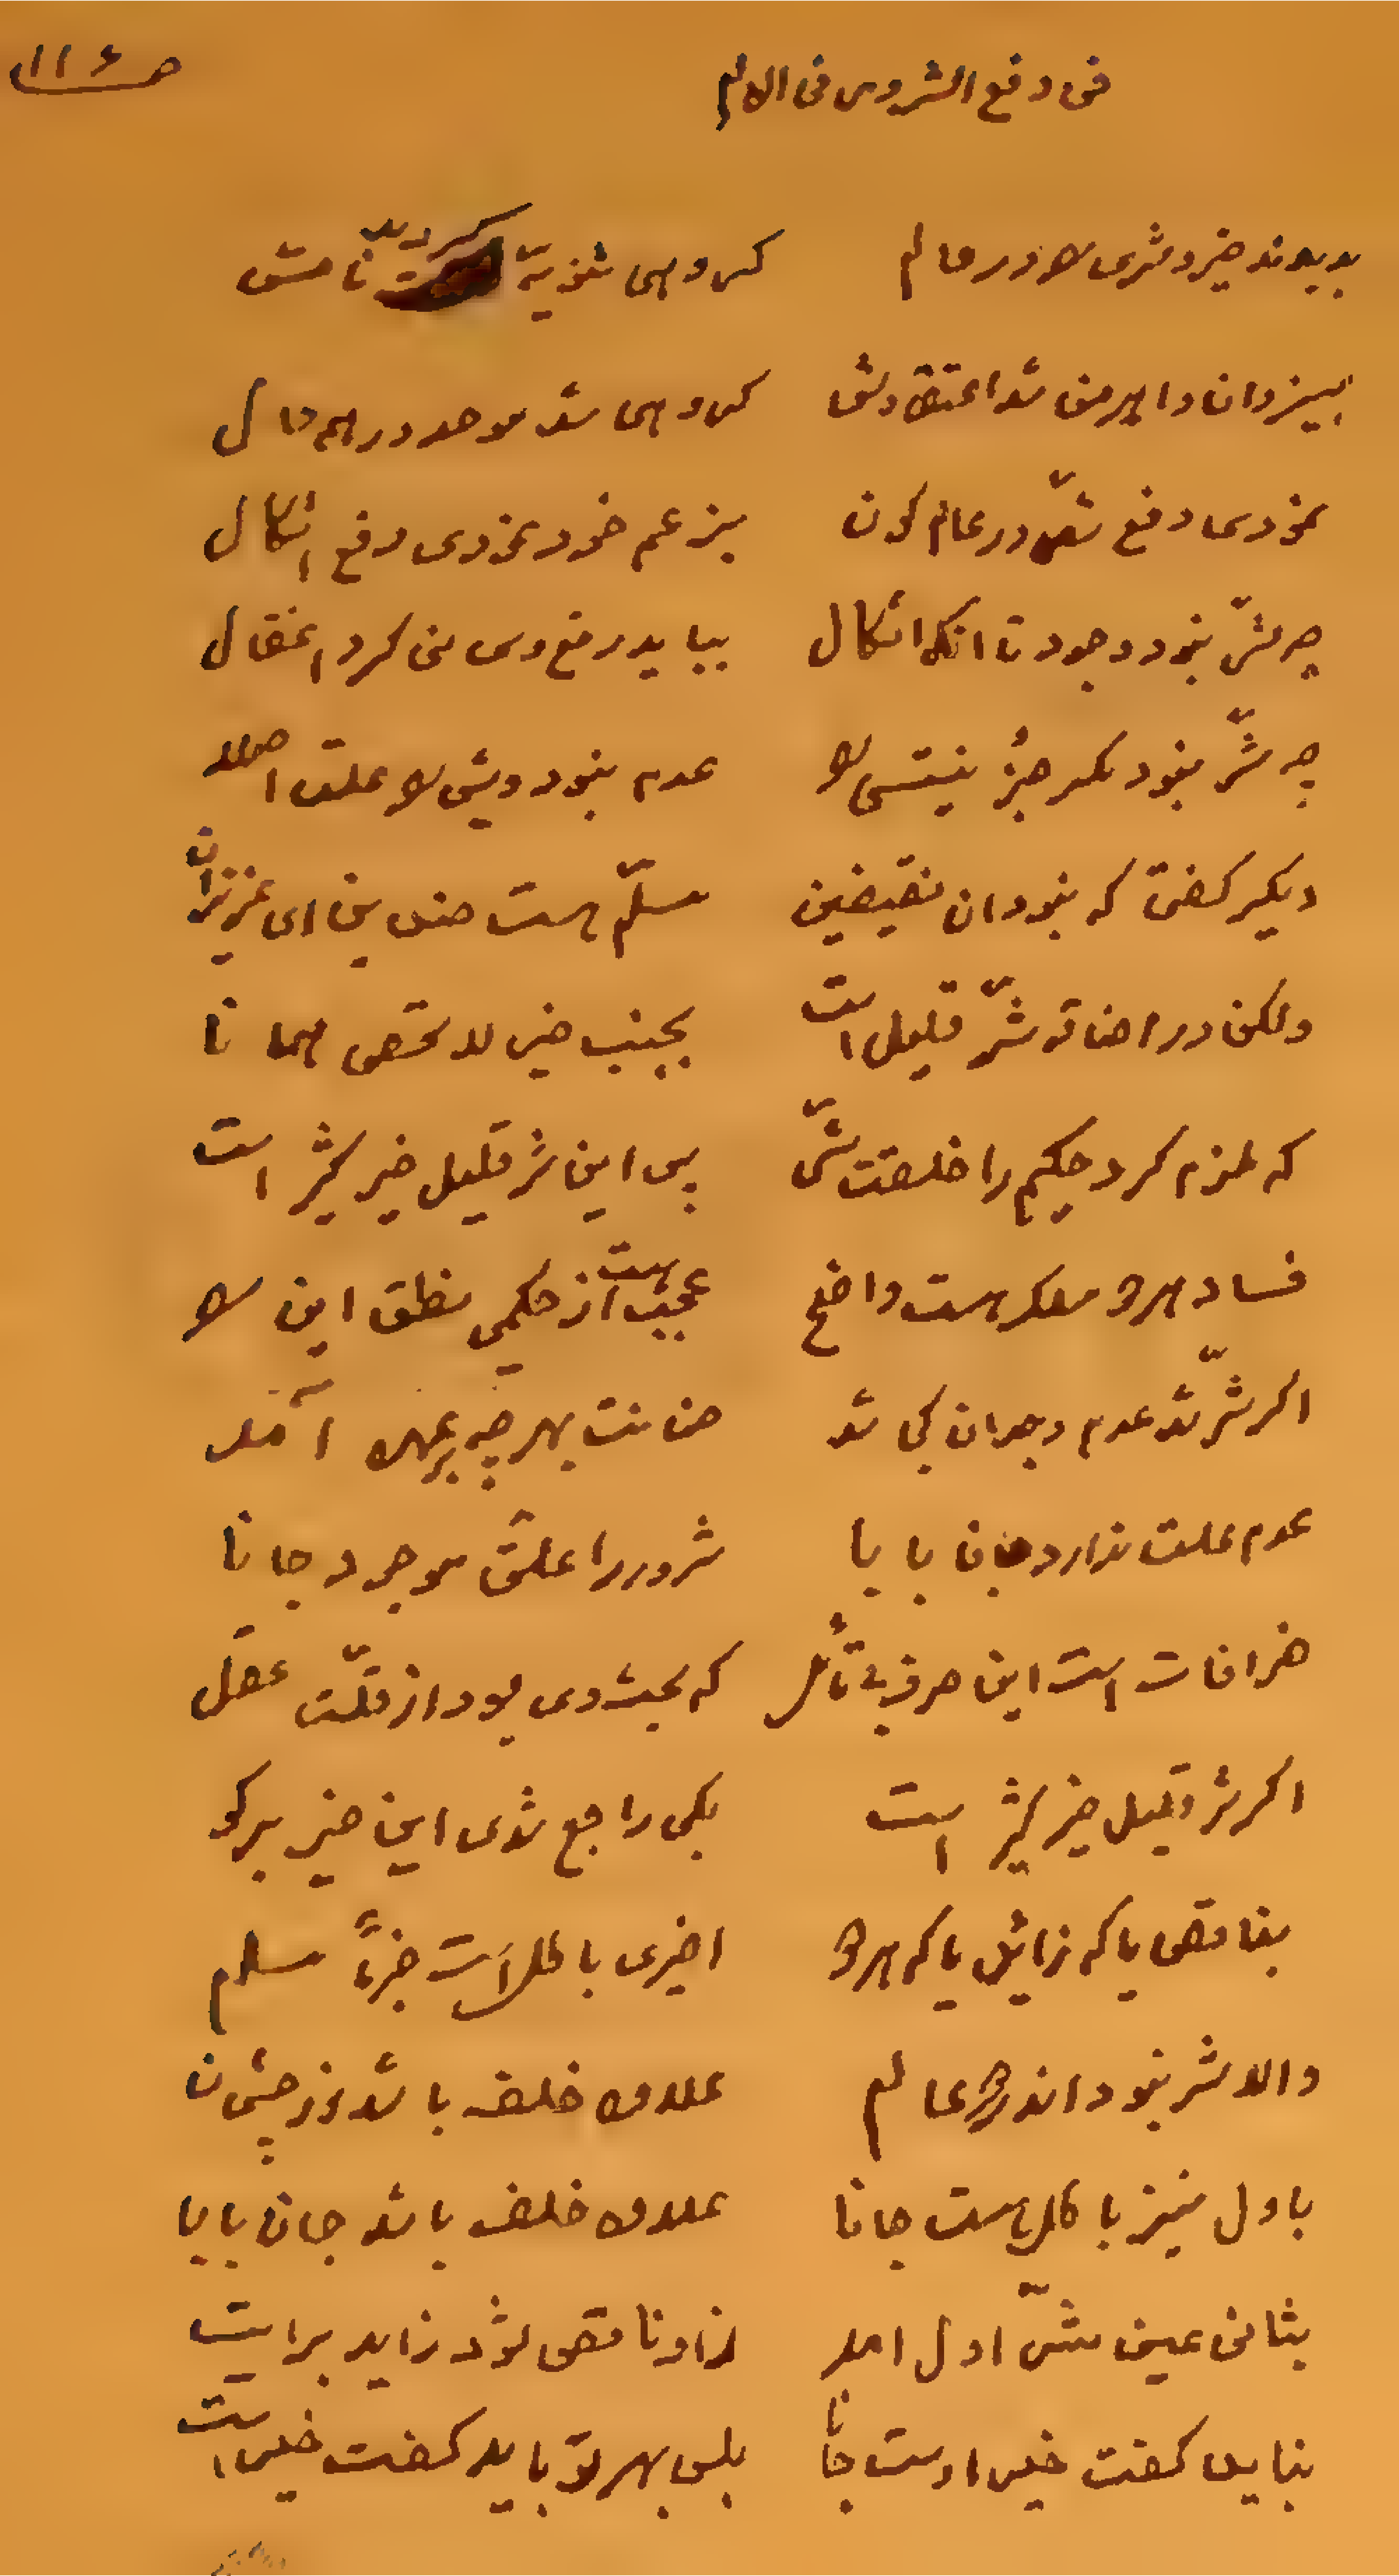 ص ١١٤
فی دفع الشرور فی العالم
بدیدند خیر و شری را در عالم گروهی ثنویة گردید نامش
بیزدان و اهرمن شد اعتقادش گروهی شد موحد در همه حال
نمودی دفع شر در عالم کون بزعم خود نمودی دفع اشکال
چه شر نبود وجود تا آنکه اشکال بباید دفع وی می کرد
چه شر نبود مگر جز نیستی را عدم نبود ویش را علت اصلا
دیگر گفتی که نبود ان نقیضین مسلم هست ضدین ای عزیزان
ولکن در اضافه شر قلیل است بجنب خیر لا تحصی همانا
که ملزم کرد حکیم را خلقت شی پس این شر قلیل خیر کثیر است
فساد هر دو مسلک هست واضح عجیب هست از حکیمی نطق این را
اگر شر شد عدم وجدان کی شد ضمانت بهر چه بر عهده آمد
عدم علت ندارد جان بابا شرور را علتی موجود جانا
خرافات است این حرف بی تأمل که بحث وی بود از قلت عقل
اگر شر قلیل خیر کثیر است بکی راجع شدی این خیر برگو
بناقص یا که زائل یا که هر دو اخیری باطل است جزماً مسلم
والا شر نبود اندر دو عالم علاوه خلف باشد نزد چشمان
باول نیز باطل هست جانا علاوه خلف باشد جان بابا
بثانی عین شر اول آمد از او ناقص نشود زاید برایت
نباید گفت خیر است جانا بلی بهر تو باید گفت خیر است